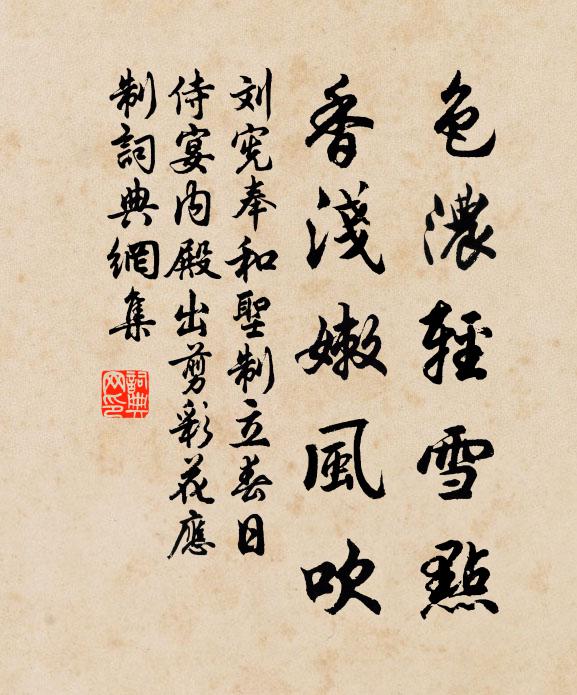 色濃輕雪點
香淺嫩風吹
刘宪奉和聖制立春日
侍宴内殿出剪彩花應
制詞典網集
詞典网印